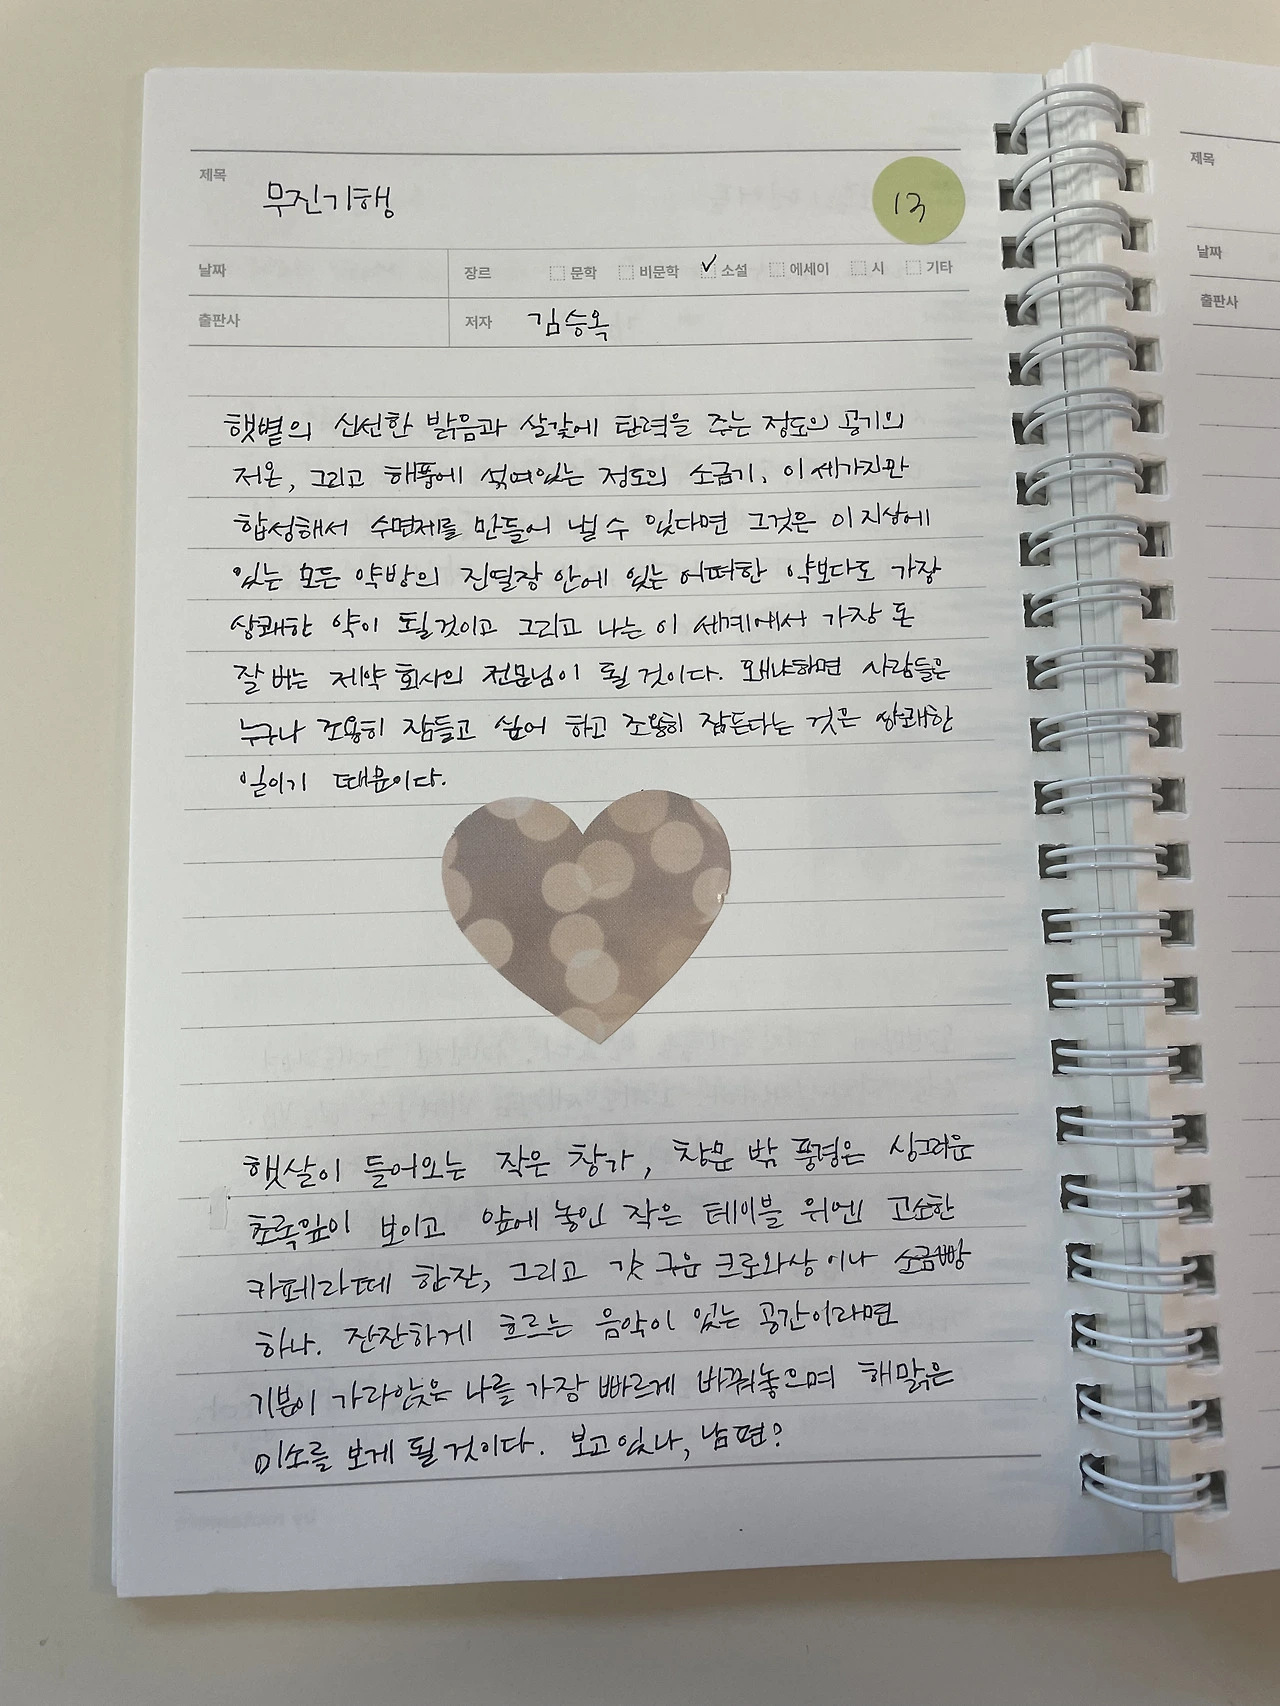 제목
무진기행
13
날짜
장르 문학 비문학 ✓ 소설 에세이 시 기타
출판사
저자 김승옥
햇볕의 신선한 밝음과 살갗에 탄력을 주는 정도의 공기의
저온, 그리고 해풍에 섞여있는 정도의 소금기, 이 세가지만
합성해서 수면제를 만들어 낼 수 있다면 그것은 이 지상에
있는 모든 약방의 진열장 안에 있는 어떠한 약보다도 가장
상쾌한 약이 될 것이고 그리고 나는 이 세계에서 가장 돈
잘 버는 제약 회사의 전무님이 될 것이다. 왜냐하면 사람들은
누구나 조용히 잠들고 싶어 하고 조용히 잠든다는 것은 상쾌한
일이기 때문이다.
햇살이 들어오는 작은 창가, 창문 밖 풍경은 싱그러운
초록잎이 보이고 앞에 놓인 작은 테이블 위엔 고소한
카페라떼 한잔, 그리고 갓 구운 크로와상이나 소금빵
하나. 잔잔하게 흐르는 음악이 있는 공간이라면
기분이 가라앉은 나를 가장 빠르게 바꿔놓으며 해맑은
미소를 보게 될 것이다. 보고있나, 남편?
제목
날짜
출판사